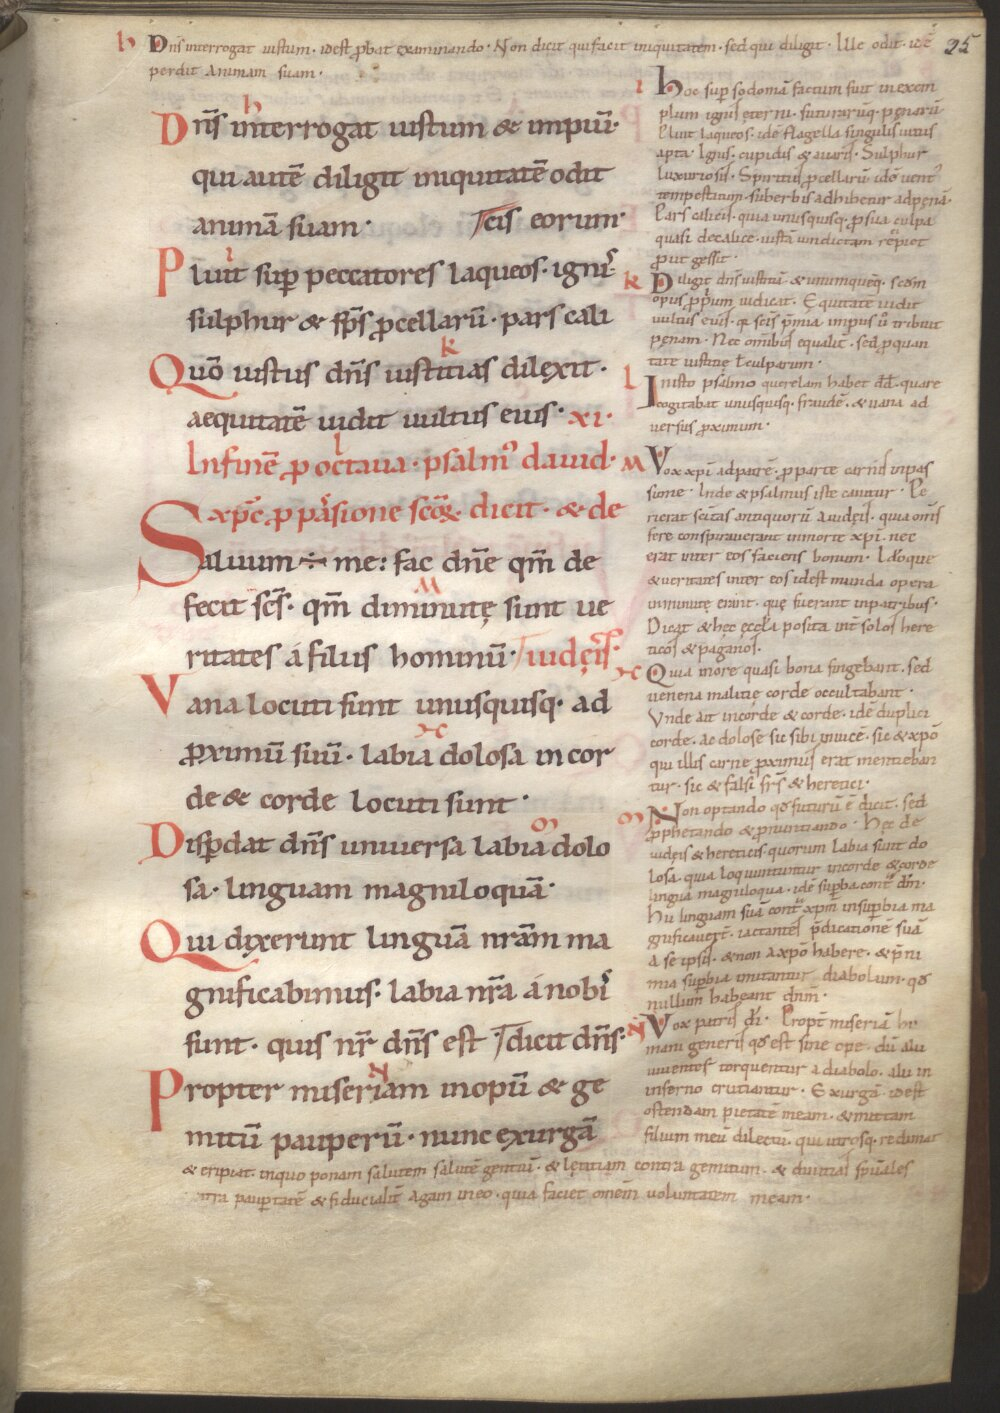 h Dn̄s interrogat iustum· idest ꝓbat examinando· Non dicit qui facit iniquitatem· sed qui diligit· Ille odit· idē 25
perdit animam suam·
Dn̄s interrogat iustum & impiū·
qui autē diligit iniquitatē odit
animā suam· cis eorum·
Pluit suꝑ peccatores laqueos· ignis·
sulphur & sp̄s ꝓcellarū· pars cali
Quō iustus dn̄s iustitias dilęxit·
aequitatē uidit uultus eius· xi·
In finē ꝓ octaua· psalm' dauid·
xp̄c ꝓ passione scōꝝ dicit· & de
Saluum ÷ me: fac dn̄e qm̄ de
fecit scs̄· qm̄ diminutę sunt ue
ritates á filiis hominū· iudęis·
Vana locuti sunt unusquisq· ad
ꝓximū suū· labia dolosa in cor
de & corde locuti sunt·
Disꝑdat dn̄s uniuersa labia dolo
sa· linguam magniloquā·
Qui dixerunt linguā nrām ma
gnificabimus· labia nr̄a á nobis
sunt· quis nr̄ dn̄s est dicit dn̄s·
Propter miseriam inopū & ge
mitū pauperū· nunc exurgā
i Hoc suꝑ sodomā factum fuit in exem
plum ignis ęterni· futurarūq· pęnarū
Pluit laqueos· idē flagella singulis uitiis
apta· Ignis· cupidis & auaris· Sulphur
luxuriosis· Spiritus ꝓcellarū idē uent'
tempestatum· suberbis adhibetur ad pęnā·
Pars calicis· quia unusquisq· ꝓ sua culpa
quasi de calice· iustā uindictam recipiet
ꝓut gessit·
k Diligit dn̄s iustitiā & unumquēq· scdm
opus ꝓprium iudicat· Ęquitatē uidit
uultus eius· q scīs p̄mia impiis ū tribuit
pęnam· Nec omīb; equalit̄· sed ꝓ quan
titate iustitię t culparum·
l In isto psalmo querelam habet dd̄· quare
cogitabat unusquisq· fraudē· & uana ad
uersus ꝓximum·
M Vox xpi ad patrē· ꝓ parte carnis in pas
sione· Inde & psalmus iste canitur· Pe
rierat scitas antiquorū a iudeis· quia om̄s
fere conspirauerant in morte xpi· nec
erat inter eos faciens bonum· Idoque
& ueritates inter eos idest munda opera
inminutę erant· quę fuerant in patribus·
Dicat & hęc ęccła posita int̄ solos here
ticos & paganos·
Quia in ore quasi bona fingebant· sed
uenena malitię corde occultabant·
Vnde ait in corde & corde· idē duplici
corde· ac dolose sic sibi inuicē· sic & xpō
qui illis carne ꝓximus erat mentieban
tur· sic & falsi frs̄ & heretici·
Non optando qd̄ futurū ē dicit· sed
ꝓphetando & ꝓnuntiando· Hęc de
iudeis & hereticis· quorum labia sunt do
losa· quia loquuntur in corde & corde
lingua magniloqua· idē suꝑba cont̄ dm̄·
Hii linguam suā cont̄ xpm̄ in suꝑbia ma
gnificauert̄· iactantes p̄dicationē suā
a se ipsis· & non a xpō habere· & p̄ni
mia suꝑbia imitantur diabolum· qd̄
nullum habeant dn̄m·
N Vox patris dī· Propt̄ miseriā hu
mani generis qd̄ est sine ope· dū alii
uiuentes torquentur a diabolo· alii in
inferno cruciantur· Exurgā· idest
ostendam pietatē meam· & mittam
filium meū dilectū· qui utrosq· redimat
& eripiat· in quo ponam salutem salutē gentiū· & lętitiam contra gemitum· & diuitias spūales
paupertatē & fiducialit̄ agam in eo· quia faciet omēm uoluntatem meam·